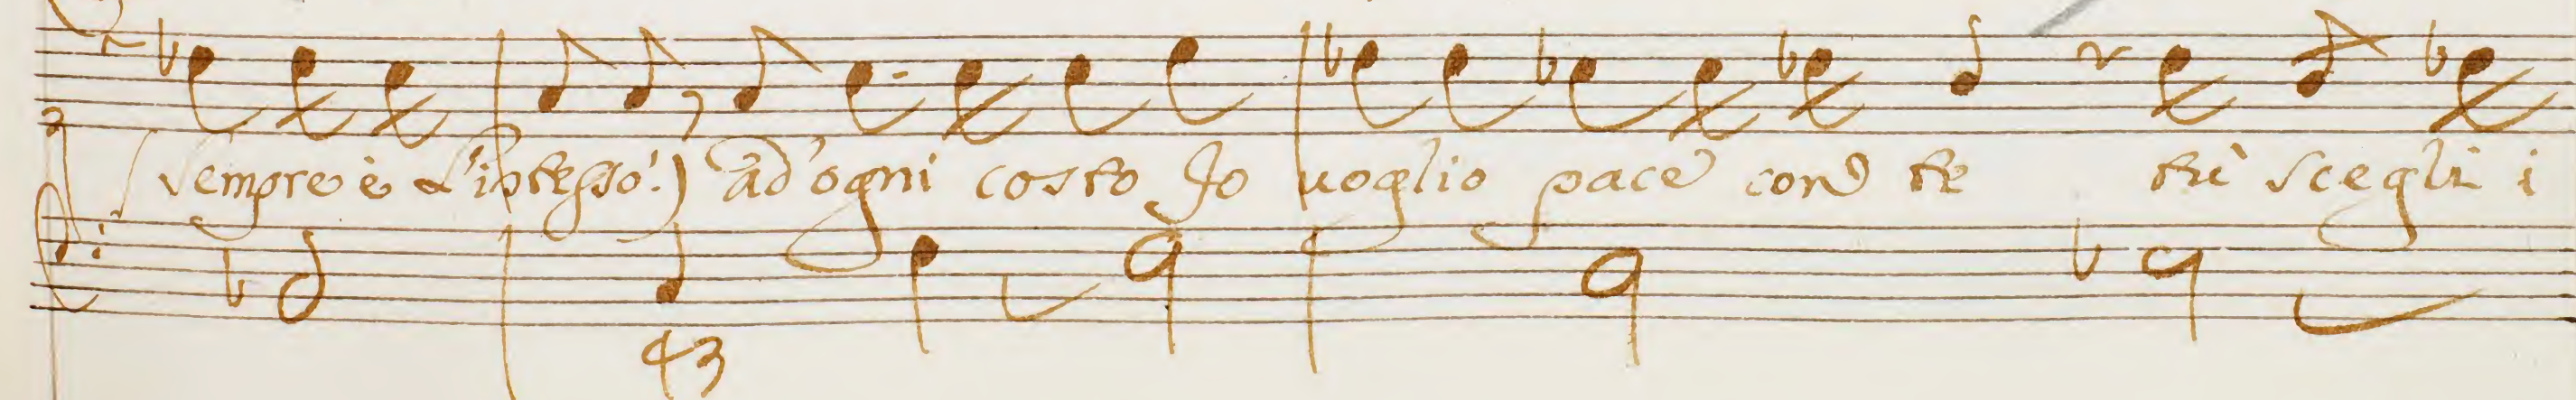 sempre è l'istesso!) ad'ogni costo Io uoglio pace con te tù scegli i
43